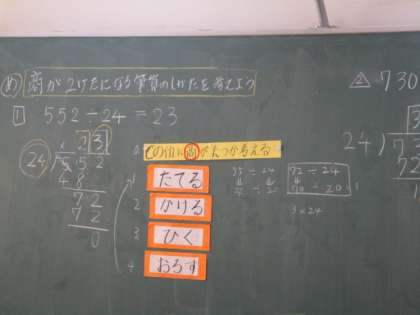 め 商が2けたになる筆算のしかたを考えよう
1 552÷24=23
23
24)552
48
72
72
0
どの位に商がたつか考える
1 たてる
2 かける
3 ひく
4 おろす
72÷24
70÷20
3×24
2 730
3
24)73
72
1